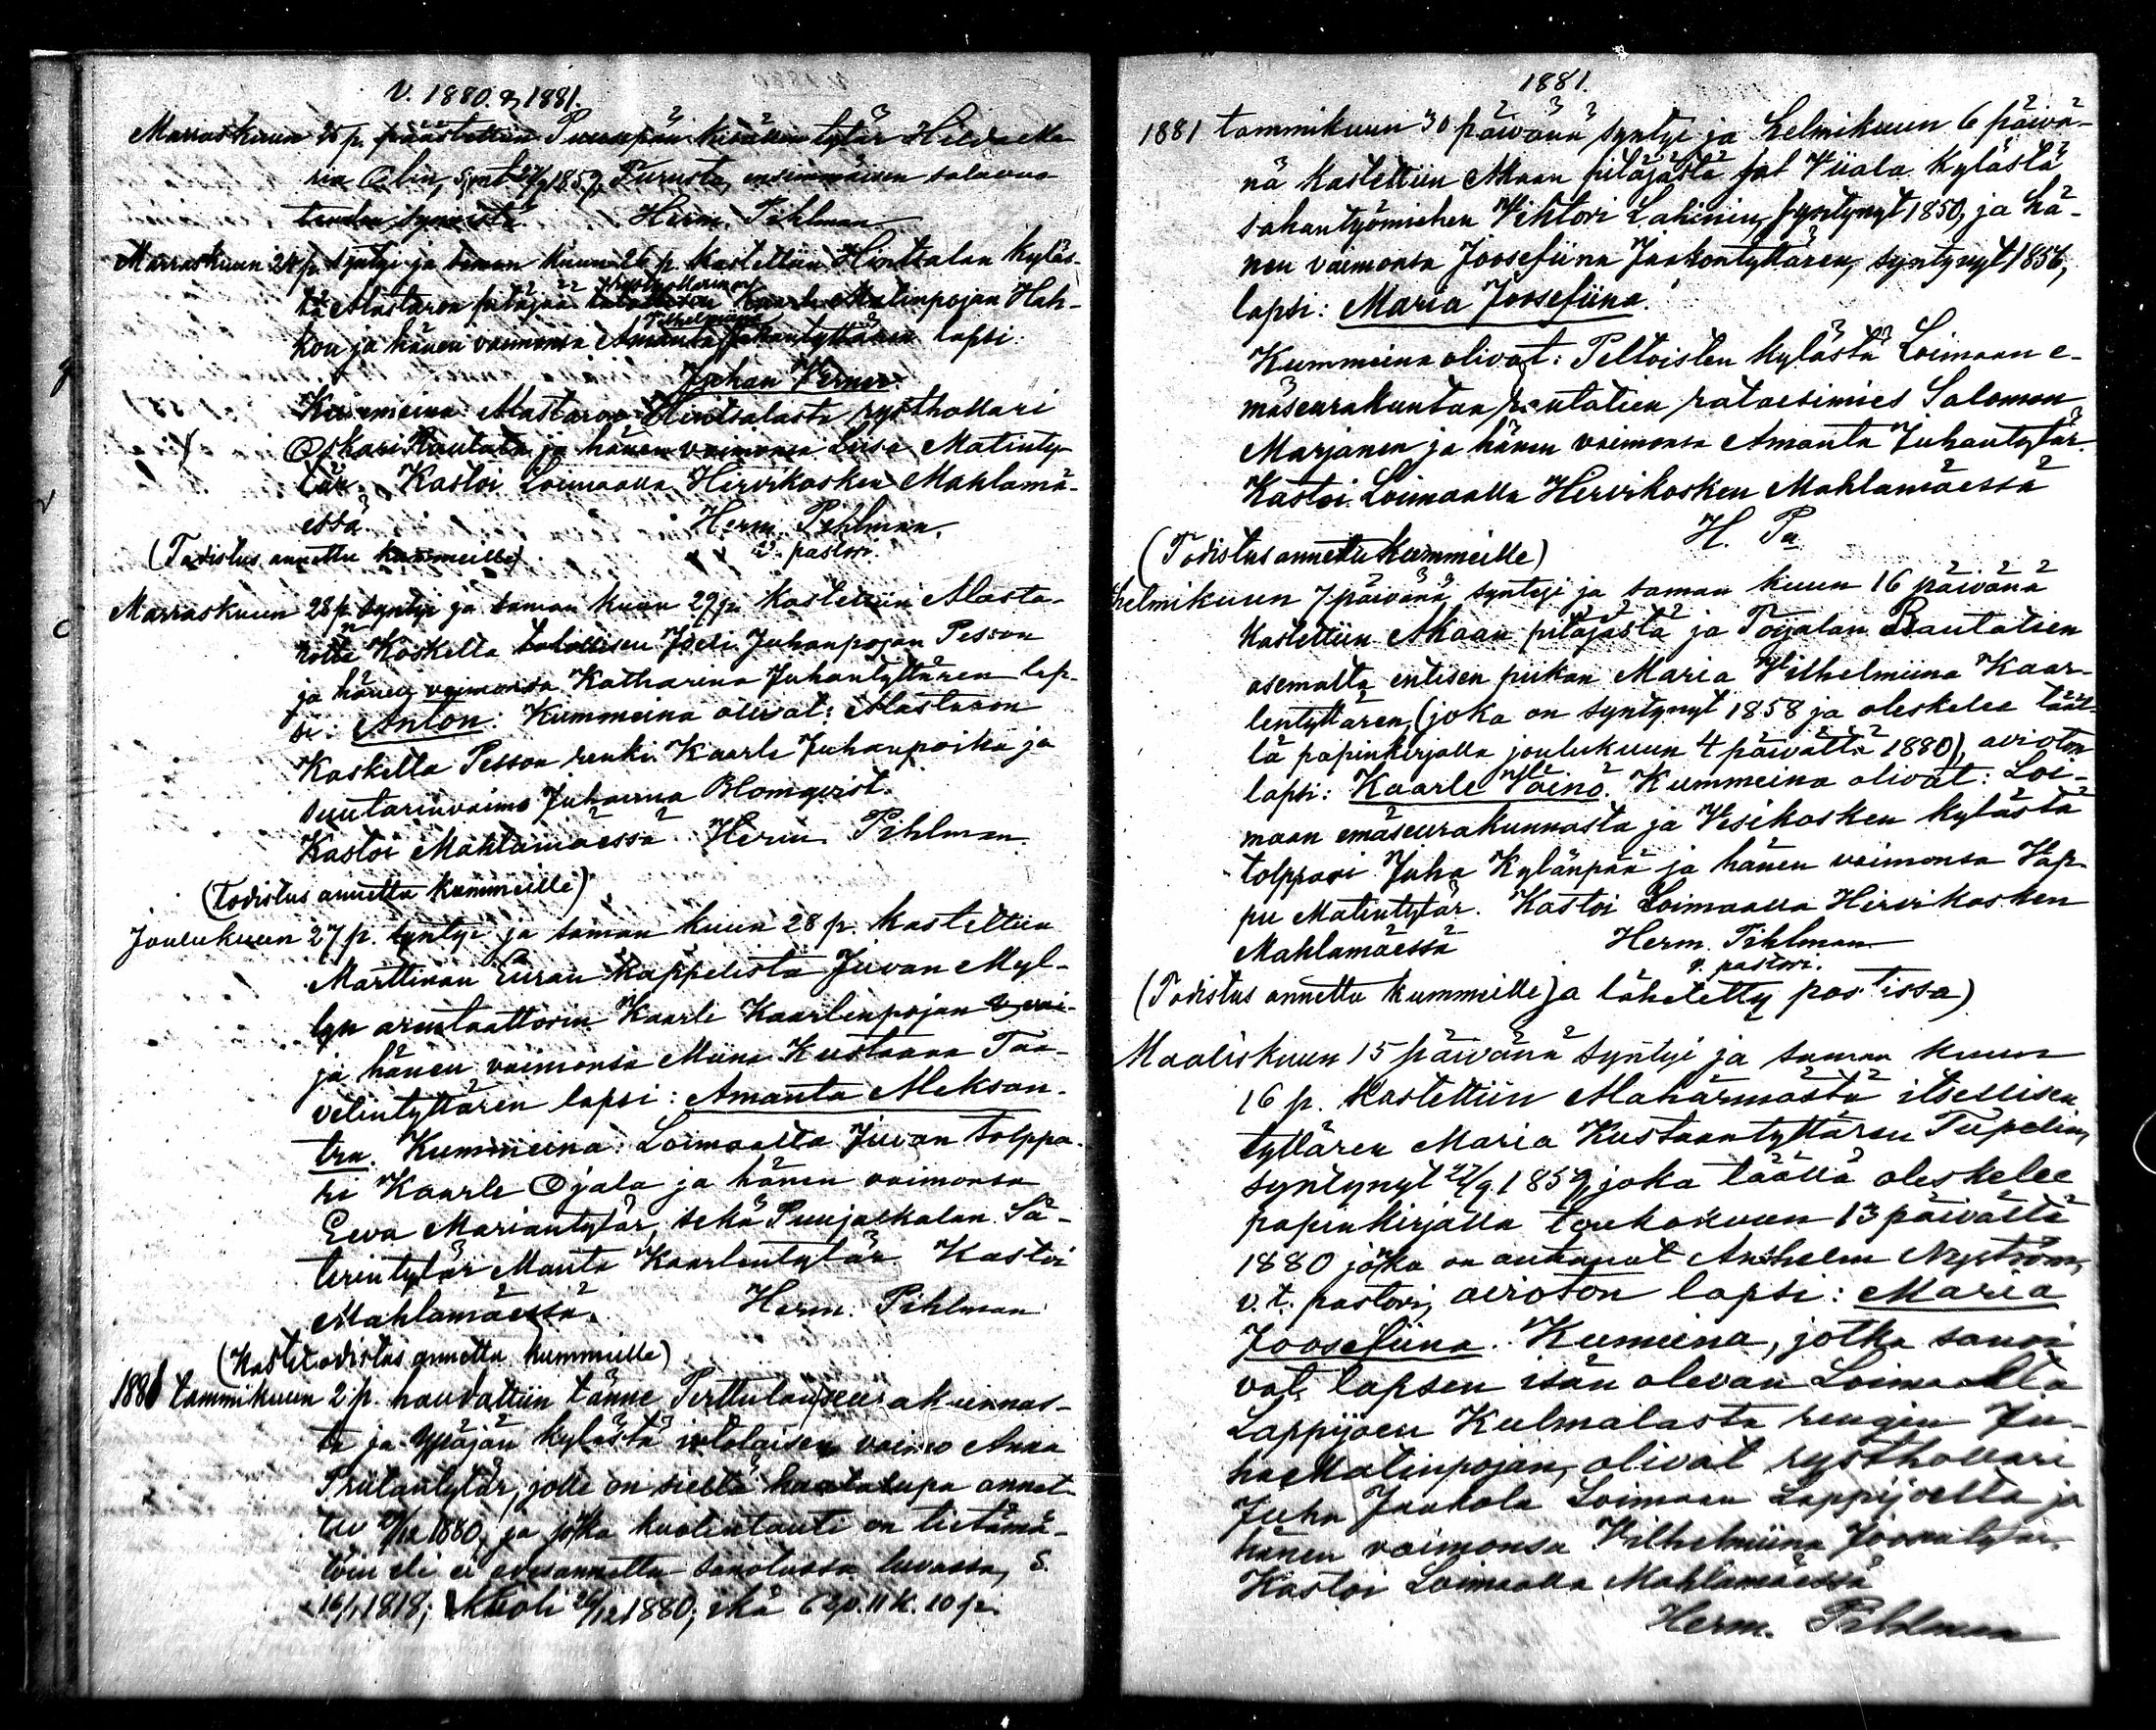 V. 1880 & 1881.
Marraskuun 25 p. päästettiin Puusepän kisällin tytär Hilda Ma-
ria Olin, synt. 1859, Turusta, ensimmäisen salavuo-
teuden synnistä. Herm. Pihlman
Marraskuun 24 p. syntyi ja saman kuun 26 p. kastettiin Hintsalan kyläs-
tä Alastaron pitäjää Kaarle Matinpojan Hah-
kon ja hänen vaimonsa Amanta Vilhelmiina Juhantyttären lapsi:
Juhan Verner.
Kummeina: Alastaron Hintsalasta rysthollari
Oskari Rautala ja hänen vaimonsa Liisa Matinty-
tär. Kastoi Loimaalla Hirvikosken Mahlamä-
essä. Herm. Pihlman.
v. pastori.
(Todistus annettu kummeille)
Marraskuun 28 p. syntyi ja saman kuun 29 p. kastettiin Alasta-
ron Koskelta talollisen Juhanpojan Pesson
ja hänen vaimonsa Katharina Juhantyttären lap-
si: Anton. Kummeina olivat: Alastaron
Koskelta Pesson renki Kaarle Juhanpoika ja
suutarinvaimo Juhanna Blomqvist.
Kastoi Mahlamäessä Herm. Pihlman.
(Todistus annettu kummeille)
Joulukuun 27 p. syntyi ja saman kuun 28 p. kastettiin
Marttinan Euran kappelista Juvan Myl-
lyn arentaattorin Kaarle Kaarlenpojan
ja hänen vaimonsa Miina Kustaava Taa-
velintyttären lapsi: Amanta Aleksan-
tra. Kummeina: Loimaalta Juvan torppa-
ri Kaarle Ojala ja hänen vaimonsa
Eeva Mariantytär, sekä Puujalkalan Sä-
terintytär Manta Kaarlentytär. Kastoi
Mahlamäessä. Herm. Pihlman
(Kastetodistus annettu kummeille)
1881 tammikuun 2 p. haudattiin tänne Perttulan seurakunnas-
ta ja Ypäjän kylästä itellisen vaimo Anna
Priitantytär, jolle on sieltä hautalupa annet-
tu 29/12 1880, ja jonka kuolintauti on tietämä-
töin eli ei edesannettu sanotussa luvassa, S.
16/1 1818, Kuoli 26/12 1880; ikä 62 v. 11 k. 10 p.
1881.
1881 tammikuun 30 päivänä syntyi ja helmikuun 6 päivä-
nä kastettiin Akaan pitäjästä ja Viiala kylästä
sahantyömiehen Vihtori Lahinin, syntynyt 1850, ja hä-
nen vaimonsa Joosefiina Jaakontyttären, syntynyt 1856,
lapsi: Maria Joosefiina.
Kummeina olivat: Peltoisten kylästä Loimaan e-
mäseurakuntaa, rautatien rataesimies Salomon
Marjanen ja hänen vaimonsa Amanta Juhantytär.
Kastoi Loimaalla Hirvikosken Mahlamäessä
H. Pn
(Todistus annettu kummeille)
helmikuun 7 päivänä syntyi ja saman kuun 16 päivänä
kastettiin Akaan pitäjästä ja Toijalan Rautatien
asemalta entisen piikan Maria Vilhelmiina Kaar-
lentyttären, (joka on syntynyt 1858 ja oleskelee tääl-
lä papinkirjalla joulukuun 4 päivältä 1880), aviotoin
lapsi: Kaarle Väinö. Kummeina olivat: Loi-
maan emäseurakunnasta ja Vesikosken kylästä
torppari Juha Kylänpää ja hänen vaimonsa Vap-
pu Matintytär. Kastoi Loimaalla Hirvikosken
Mahlamäessä Herm. Pihlman
v. pastori.
(Todistus annettu kummeille ja lähetetty postissa)
Maaliskuun 15 päivänä syntyi ja saman kuun
16 p. kastettiin Alahärmästä itsellisen
tyttären Maria Kustaantyttären Tiipelin,
syntynyt 27/9 1859, joka täällä oleskelee
papinkirjalla toukokuun 13 päivältä
1880 jonka on antanut Anshelm Nyström,
v.t. pastori, avioton lapsi: Maria
Joosefiina. Kumeina, jotka sanoi-
vat lapsen isän olevan Loimaalta
Lappijoen Kulmalasta rengin Ju-
ha Matinpojan, olivat rysthollari
Juha Jaakola Loimaan Lappijoelta ja
hänen vaimonsa Vilhelmiina Joonatytär.
Kastoi Loimaalla Mahlamäessä
Herm. Pihlman